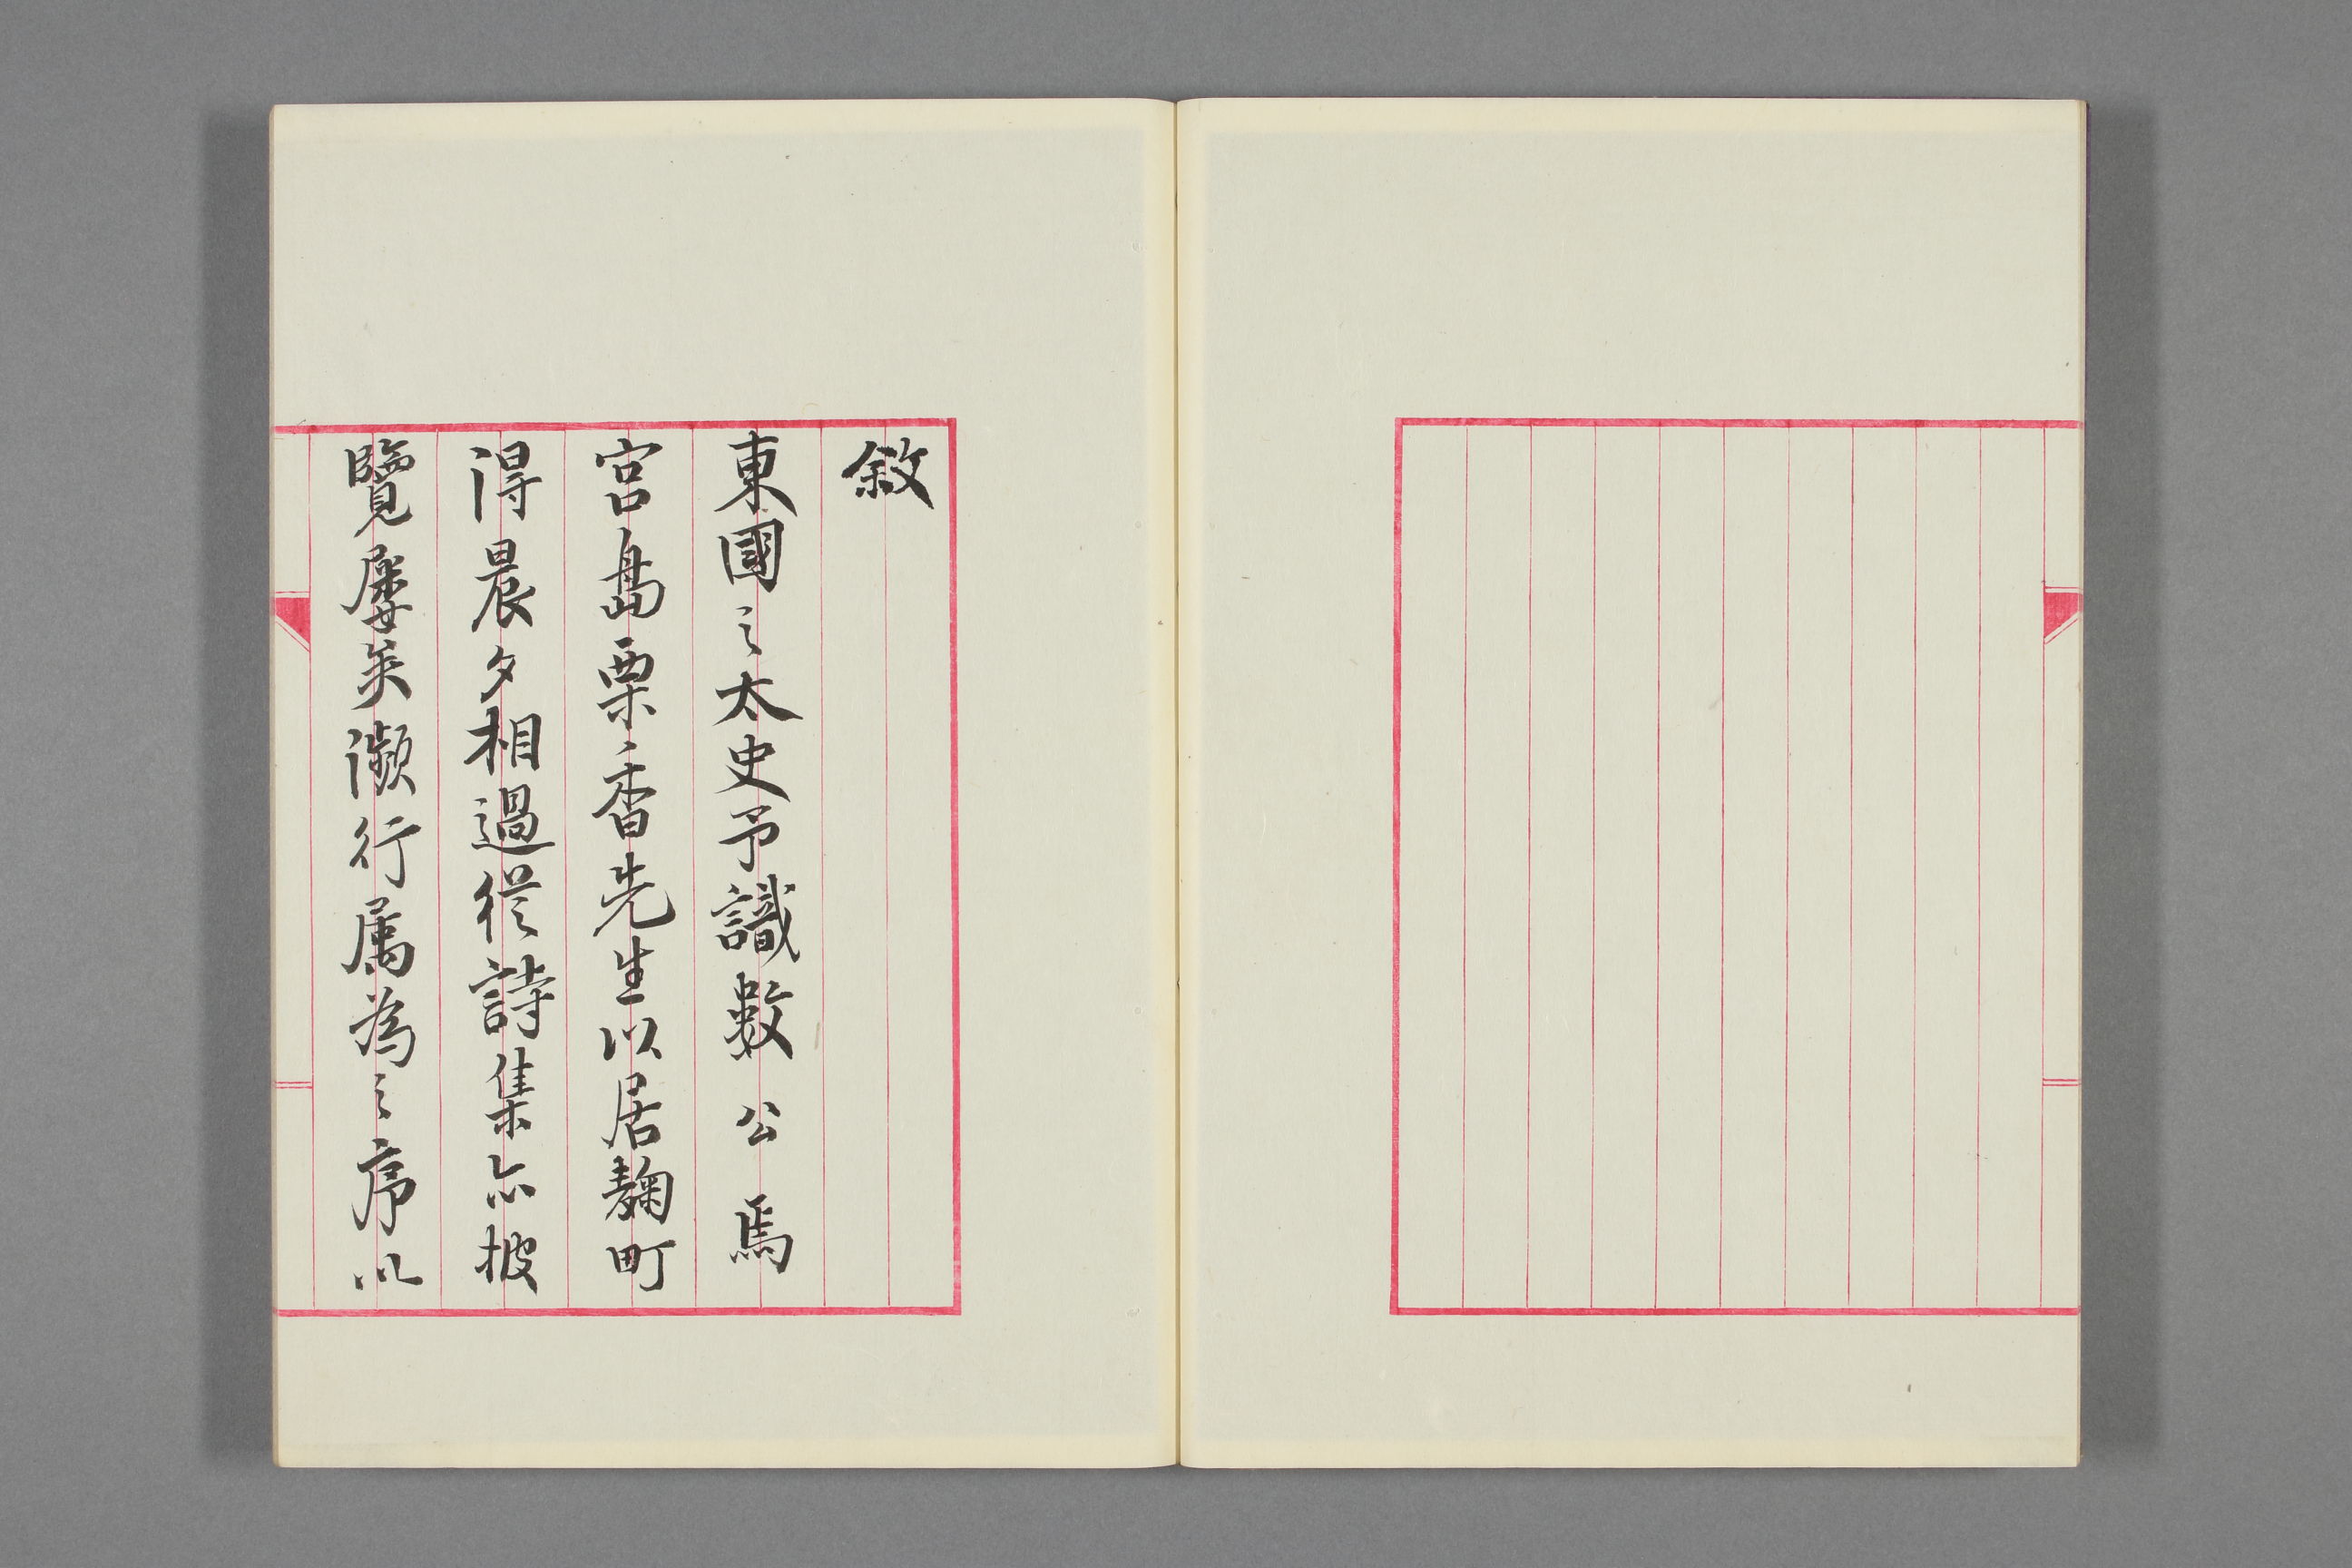 敘
東國之太史予識數公焉
宮島栗香先生以居麴町
得晨夕相過從詩集亦披
覽屢矣瀕行属為之序以